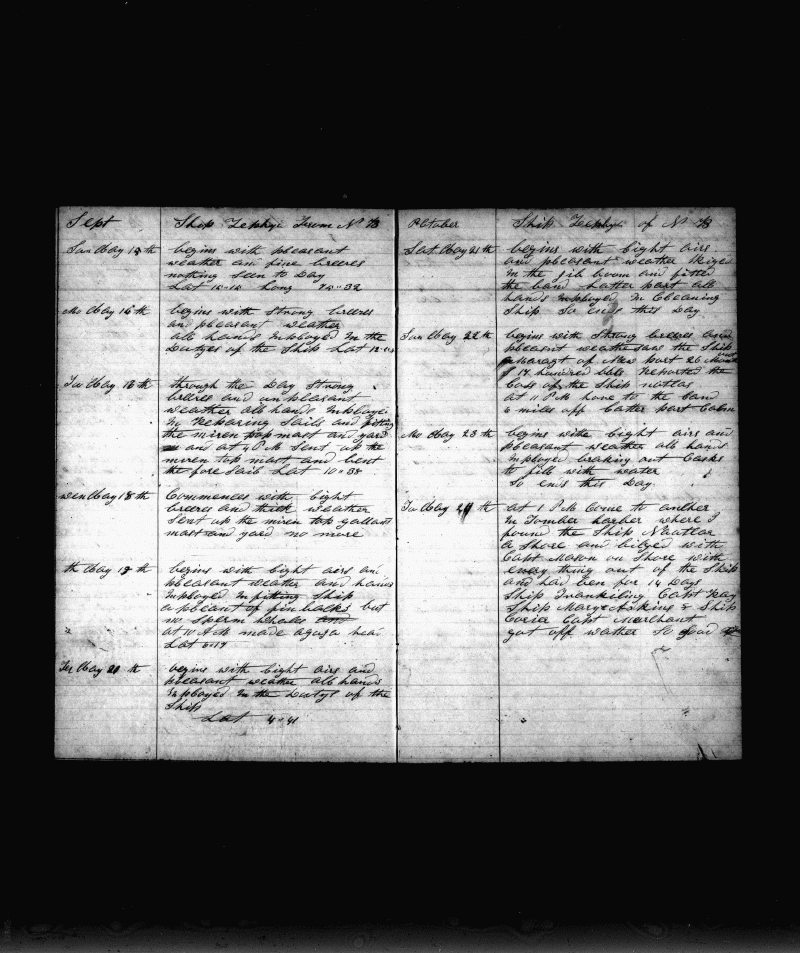 Sept Ship Zephyr From N B
Sun day 15th begins with pleasant
weather and fine breeses
nothing seen to Day
Lat Long
Mo day 16th begins with Strong breeses
and pleasant weather
all hands Imployed In the
Dutys of the Ship Lat
Tu day through the Day Strong
breeses and un pleasant
weather all hands Imployed
In Reparing Sails and fitting
the mizen top mast and yard
and at 4 P M Sent up the
mizen top mast and bent
the fore Sail Lat 10"38
wen day 18th Commences with light
breeses and thick weather
Sent up the mizen top gallant
mast and yard no more
th day 19th begins with light airs and
pleasant weather and hands
Imployed In fitting Ship
a pleant of fin backs but
no Sperm whales
at 10 A M made head
Lat
Fri day th begins with light airs and
pleasant weather all hands
Imployed In the Dutys of the
Ship
Lat 4"41
October Ship Zephyr of N B
Sat day 21th begins with light airs
and pleasant weather
In the jib boom and fitted
the band latter part all
hands Imployed In Cleaning
Ship So ends this Day
Sun day 22th begins with Strong breeses and
pleasant weather saw the Ship
of New port 26 Months
17 hundred bbls Reported the
Loss of the Ship
at 11 P M hove to the land
6 miles off Latter part Calm
Mo day 23th begins with light airs and
pleasant weather all hands
Imployed braking out Casks
to fill with water
So ends this Day
Tu day 24th at 1 P M Come to ancher
In Tombez harber where I
found the Ship
a Shore and bilged with
Capt Mason on Shore with
every thing out of the Ship
and had been for 14 Days
Ship Capt
Ship Mary & Ship
Capt Merchant
got off wather So